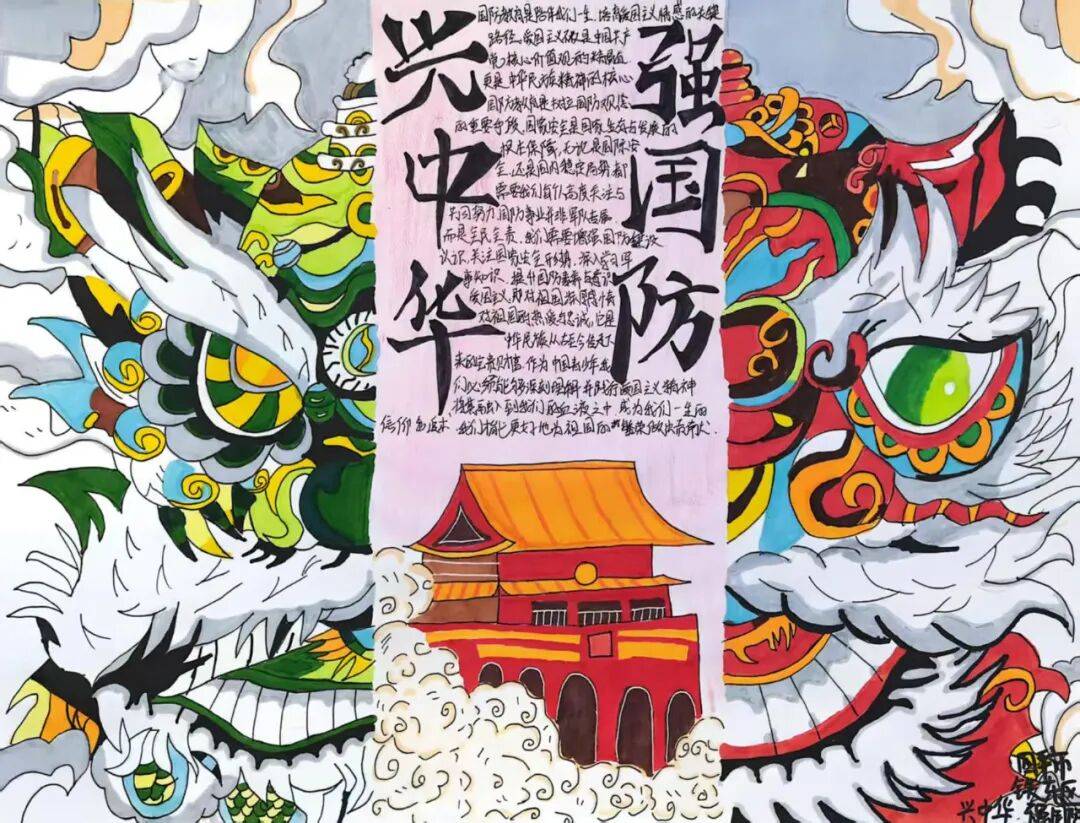 兴中华
强国防
国防教育是陪伴我们一生,培育爱国主义情感的关键
路径。爱国主义
是中国共产
党核心价值观的精
更是中华民族精神的核心
国防教育是树立国防观念
的重要手段,国家安全是国家生存与发展的
根本保障,无论是国际安
全,还是国内稳定局势都
需要我们每个人高度关注与
共同努力,国防事业并非军队
而是全民全责,我们需要增强国防建设
认识,关注国家安全形势,深入学习军
事知识,提升国防素养与意识
爱国主义,那对祖国深厚感情
对祖国的热爱与忠诚,它是
中华民族从古至今传下
来的宝贵财富,作为中国青少年我
们必须能够深刻理解并践行爱国主义精神
将其融入到我们的血液之中,成为我们一生的
信仰与追求,我们才能更好地为祖国的繁荣做出贡献.
兴中华 强国防